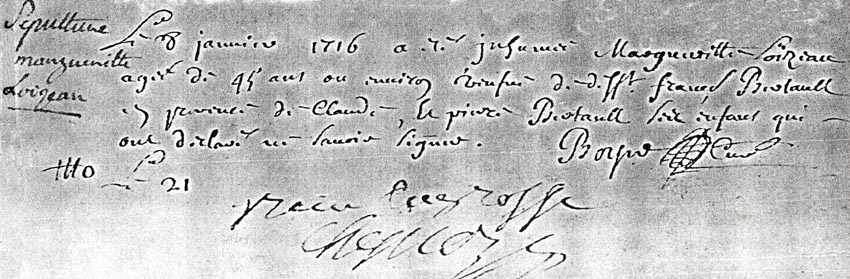 Sepulture
margueritte
Loizeau
Le 8 janvier 1716 a eté inhumée Margueritte Loizeau
ageé de 45 ans ou environ veufve de defft françs Bertault
en presence de Claude, et pierre Bertault ses enfans qui
ont declaré ne savoir signer.
Curé
Le 21